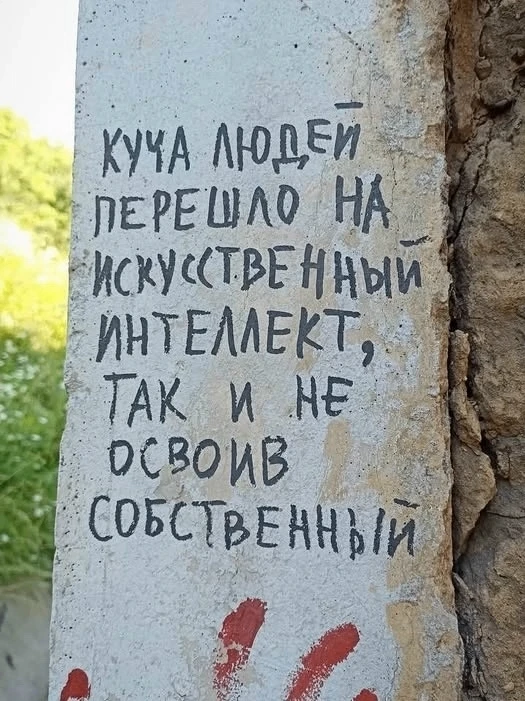 КУЧА ЛЮДЕЙ
ПЕРЕШЛО НА
ИСКУССТВЕННЫЙ
ИНТЕЛЛЕКТ,
ТАК И НЕ
ОСВОИВ
СОБСТВЕННЫЙ